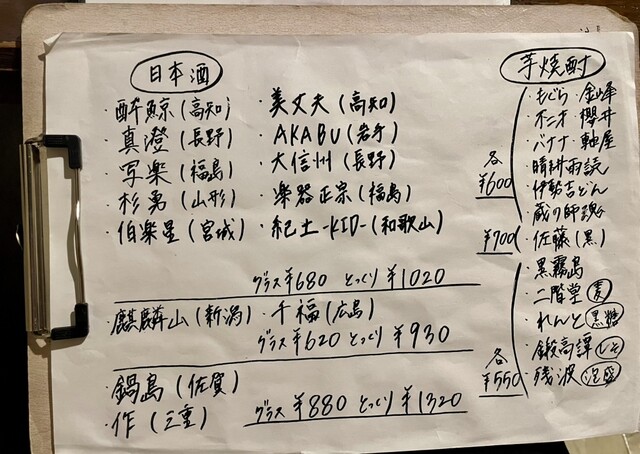 日本酒
・酔鯨(高知)
・真澄(長野)
・写楽(福島)
・杉勇(山形)
・伯楽星(宮城)
・美丈夫(高知)
・AKABU(岩手)
・大信州(長野)
・楽器正宗(福島)
・紀土-KID-(和歌山)
グラス¥680 とっくり¥1020
・麒麟山(新潟)・千福(広島)
グラス¥620 とっくり¥930
・鍋島(佐賀)
・作(三重)
グラス¥880 とっくり¥1320
芋焼酎
・もぐら・金峰
・オニオ・櫻井
・バナナ・軸屋
・晴耕雨読
・伊勢吉どん
・蔵の師魂
各¥600
・佐藤(黒)
¥700
・黒霧島
・二階堂 麦
・れんと 黒糖
・鍛高譚 しそ
・残波 泡盛
各¥550